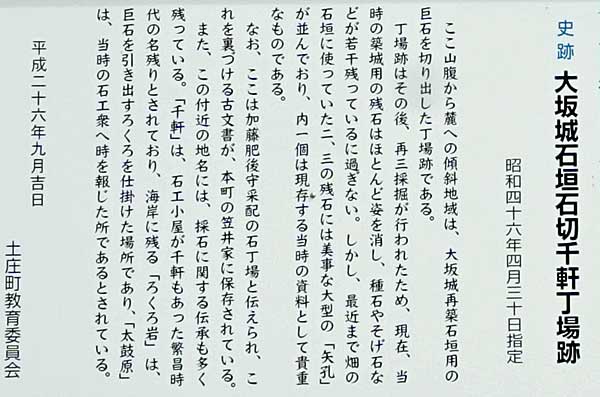 史跡 大坂城石垣石切千軒丁場跡
昭和四十六年四月三十日指定
ここ山腹から麓への傾斜地域は、大坂城再築石垣用の
巨石を切り出した丁場跡である。
丁場跡はその後、再三採掘が行われたため、現在、当
時の築城用の残石はほとんど姿を消し、種石やそげ石な
どが若干残っているに過ぎない。しかし、最近まで畑の
石垣に使っていた二、三の残石には美事な大型の「矢孔」
が並んでおり、内一個は現存する当時の資料として貴重
なものである。
なお、ここは加藤肥後守采配の石丁場と伝えられ、こ
れを裏づける古文書が、本町の笠井家に保存されている。
また、この付近の地名には、採石に関する伝承も多く
残っている。「千軒」は、石工小屋が千軒もあった繁昌時
代の名残りとされており、海岸に残る「ろくろ岩」は、
巨石を引き出すろくろを仕掛けた場所であり、「太鼓原」
は、当時の石工衆へ時を報じた所であるとされている。
平成二十六年九月吉日
土庄町教育委員会